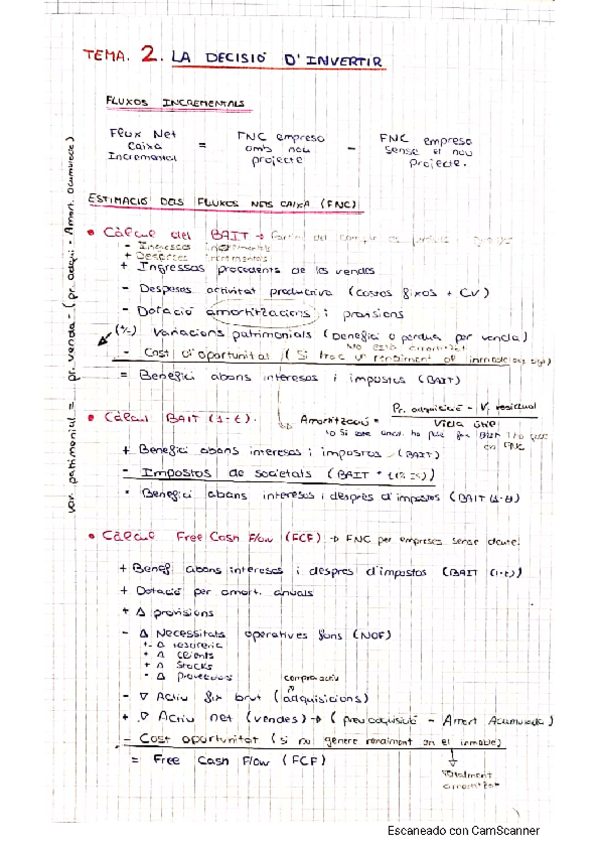 TEMA. 2. LA DECISIÓ D'INVERTIR
FLUXOS INCREMENTALS
Flux Net Caixa Incremental = FNC empresa amb nou projecte - FNC empresa sense el nou projecte.
ESTIMACIÓ DELS FLUXOS NETS CAIXA (FNC)
• Càlcul del BAIT →
- Ingressos incrementals
+ Despeses incrementals
+ Ingressos procedents de les vendes
- Despeses activitat productiva (costos fixos + CV)
- Dotació amortitzacions i provisions
(+/-) Variacions patrimonials (benefici o pèrdua per venda)
- Cost d'oportunitat (Si trec
= Benefici abans interessos i impostos (BAIT)
var. patrimonial = pr. venda - (pr. adqui - Amort. acumulada)
• Càlcul BAIT (1-t).
Amortització = Pr. adquisició - V. residual
Vida útil
+ Benefici abans interessos i impostos (BAIT)
- Impostos de societats (BAIT *
= Benefici abans interessos i després d'impostos (BAIT (1-t))
• Càlcul Free Cash Flow (FCF) → FNC per empreses sense deute.
+ Benef abans interessos i després d'impostos (BAIT (1-t))
+ Dotació per amort. anuals
+ Δ provisions
- Δ Necessitats operatives fons (NOF)
+ Δ tesoreria
+ Δ clients
+ Δ stocks
- Δ proveïdors
compra actiu
- ∇ Actiu fix brut (adquisicions)
+ ∇ Actiu net (vendes) → (preu adquisició - Amort Acumulada)
- Cost oportunitat (si no genera rendiment en el immoble)
= Free Cash Flow (FCF)
Totalment
amortitzat
Escaneado con CamScanner